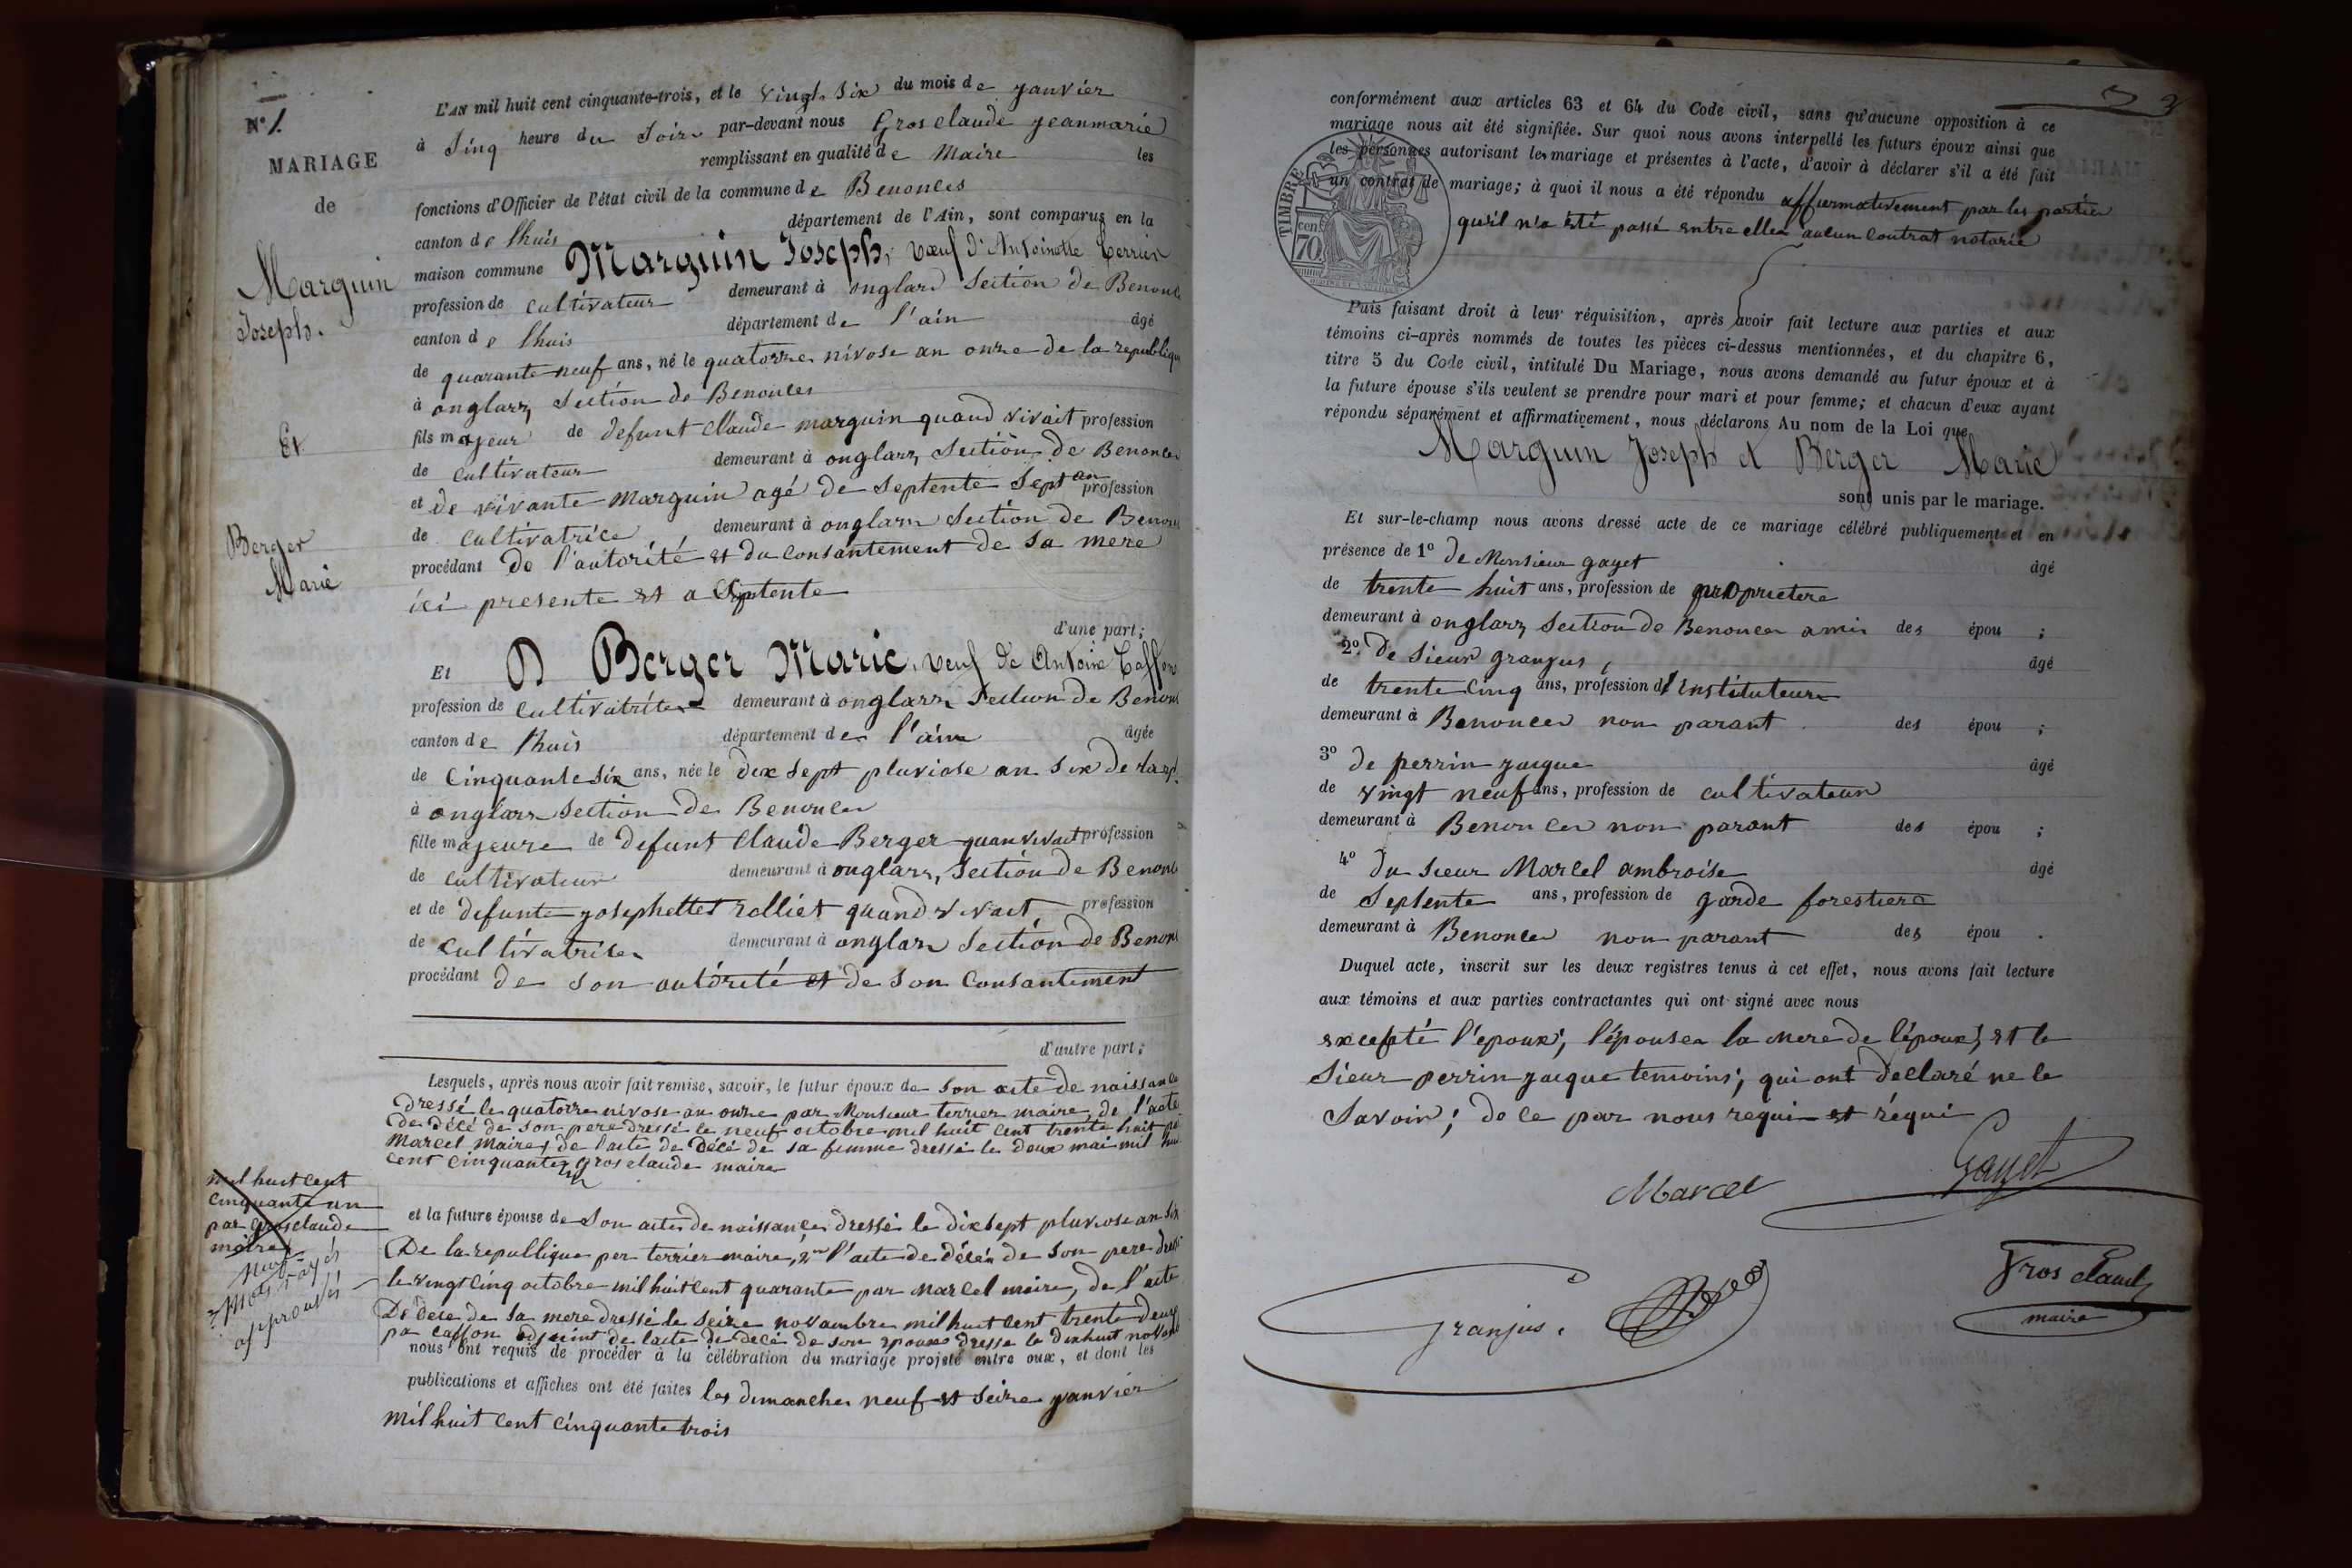 N° 1.
MARIAGE
de
Marguin
Joseph.
Et
Berger
Marie
L'AN mil huit cent cinquante-trois, et le vingt six du mois de janvier
à sinq heure du soir par-devant nous Gros claude jeanmarie
remplissant en qualité de Maire les
fonctions d'Officier de l'état civil de la commune de Benonces
canton de lhuis département de l'Ain, sont comparus en la
maison commune Marguin Joseph, vœuf d'Antoinette Terrier
profession de cultivateur demeurant à onglard section de Benonce
canton de lhuis département de l'ain âgé
de quarante neuf ans, né le quatorze nivose an onze de la republique
à onglarz section de Benonces
fils majeur de defunt Claude marguin quand vivait profession
de cultivateur demeurant à onglarz section de Benonces
et de vivante Marguin agé de septente sept an profession
de cultivatrice demeurant à onglarz section de Benonc
procédant de l'autorité et du consantement de sa mere
ici presente et a septente
d'une part;
Et D Berger Marie, veuf de Antoine Caffon
profession de cultivatrice demeurant à onglarz section de Benon
canton de lhuis département de l'ain âgée
de cinquante six ans, née le dix sept pluviose an six de la rep.
à onglarz section de Benonces
fille majeure de defunt Claude Berger quan vivait profession
de cultivateur demeurant à onglarz, section de Benonc
et de defunte josephettes rolliet quand vivait, profession
de cultivatrice demeurant à onglarz section de Benon
procédant de son autôrité et de son consantement
d'autre part;
Lesquels, après nous avoir fait remise, savoir, le futur époux de son acte de naissance
dressé le quatorze nivose an onze par Monsieur terrier maire, de l'acte
de décé de son pere dressé le neuf octobre mil huit cent trente huit
Marcel maire, de l'acte de décé de sa femme dressé le deux mai mil hui
cent cinquante grosclaude maire
mil huit cent
cinquante un
par grosclaude
maire
neuf
mots rayés
approuvés
et la future épouse de son acte de naissance dressé le dix sept pluviose an six
De la republique per terrier maire, 2 l'acte de décés de son pere dressé
le vingt cinq octobre mil huit cent quarante par Marcel maire, de l'acte
De décé de sa mere dressé le seize novambre mil huit cent trente deux
pa caffon adjoint de l'acte de decé de son epoux dresse le dixhuit nov
nous ont requis de procéder à la célébration du mariage projeté entre eux, et dont les
publications et affiches ont été faites les dimanches neuf et seize janvier
mil huit cent cinquante trois
conformément aux articles 63 et 64 du Code civil, sans qu'aucune opposition à ce
mariage nous ait été signifiée. Sur quoi nous avons interpellé les futurs époux ainsi que
les personnes autorisant les mariage et présentes à l'acte, d'avoir à déclarer s'il a été fait
un contrat de mariage; à quoi il nous a été répondu affirmativement par les parties
qu'il n'a été passé entre elles aucun contrat notarié
TIMBRE
cen
70
Puis faisant droit à leur réquisition, après avoir fait lecture aux parties et aux
témoins ci-après nommés de toutes les pièces ci-dessus mentionnées, et du chapitre 6,
titre 5 du Code civil, intitulé Du Mariage, nous avons demandé au futur époux et à
la future épouse s'ils veulent se prendre pour mari et pour femme; et chacun d'eux ayant
répondu séparément et affirmativement, nous déclarons Au nom de la Loi que
Marguin Joseph et Berger Marie
sont unis par le mariage.
Et sur-le-champ nous avons dressé acte de ce mariage célébré publiquement et en
présence de 1° de Monsieur gayet âgé
de trente huit ans, profession de proprietere
demeurant à onglarz section de Benonces amis des épou ;
2° De sieur granjus, âgé
de trente cinq ans, profession d'instituteur
demeurant à Benonces non parant des épou ;
3° de perrin jacque âgé
de vingt neuf ans, profession de cultivateur
demeurant à Benonces non parant des épou ;
4° Du sieur Marcel ambroise âgé
de septente ans, profession de garde forestiere
demeurant à Benonces non parant des épou .
Duquel acte, inscrit sur les deux registres tenus à cet effet, nous avons fait lecture
aux témoins et aux parties contractantes qui ont signé avec nous
excepté l'epoux; l'épouse la mere de l'époux; et le
sieur perrin jacque temoins; qui ont déclaré ne le
savoir; de ce par nous requi et réqui
Marcel Gayet
granjus. Gros claude
maire